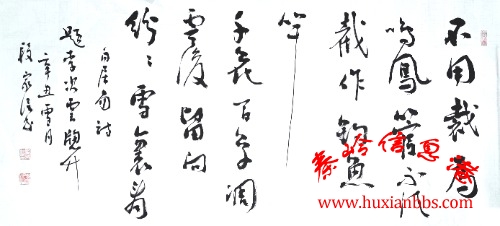 不用裁為
鳴鳳管不須
截作釣魚
竿
千花百草凋
零後留向
紛〻雪裏看
白居易詩
題李次雲窗竹
辛丑雪月
www.huxianbbs.com